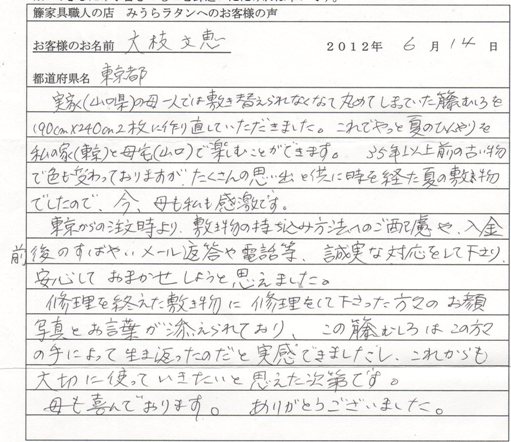 籐家具職人の店　みうらラタンへのお客様の声
お客様のお名前　大枝文恵　2012年 6 月 14 日
都道府県名　東京都
実家(山口県)の母一人では敷き替えられなくなて丸めてしまっていた籐むしろを
190cm×240cm2枚に作り直していただきました。これでやっと夏のひんやりを
私の家(東京)と母宅(山口)で楽しむことができます。　35年以上前の古い物
で色も変わっておりますが、たくさんの思い出と供に時を経た夏の敷き物
でしたので、今、母も私も感激です。
東京からの注文時より、敷き物の持ち込み方法へのご配慮や、入金
前後のすばやいメール返答や電話等、誠実な対応をして下さり、
安心しておまかせしようと思えました。
修理を終えた敷き物に修理をして下さった方々のお顔
写真とお言葉が添えられており、この籐むしろはこの方々
の手によって生き返ったのだと実感できましたし、これからも
大切に使っていきたいと思えた次第です。
母も喜んでおります。　ありがとうございました。